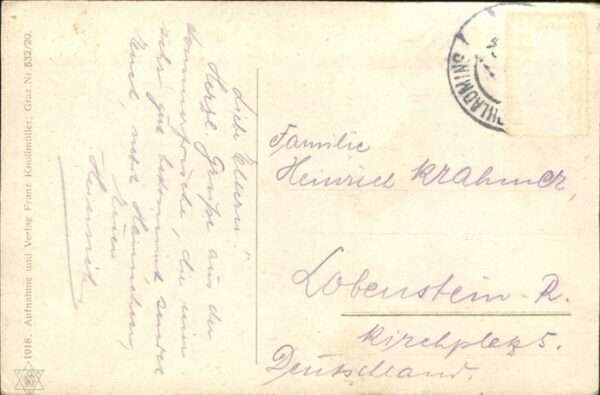 1918. Aufnahme und Verlag Franz Knollmüller, Graz. Nr. 532/20.
Liebe Eltern!
Herzl. Grüße aus der
Sommerfrische, die mir
sehr gut bekommt sendet
Euch, nebst Hannchen,
Euer
Heinrich
SCHLADMING
Familie
Heinrich Krahmer,
Lobenstein-R.
Kirchplatz 5.
Deutschland.